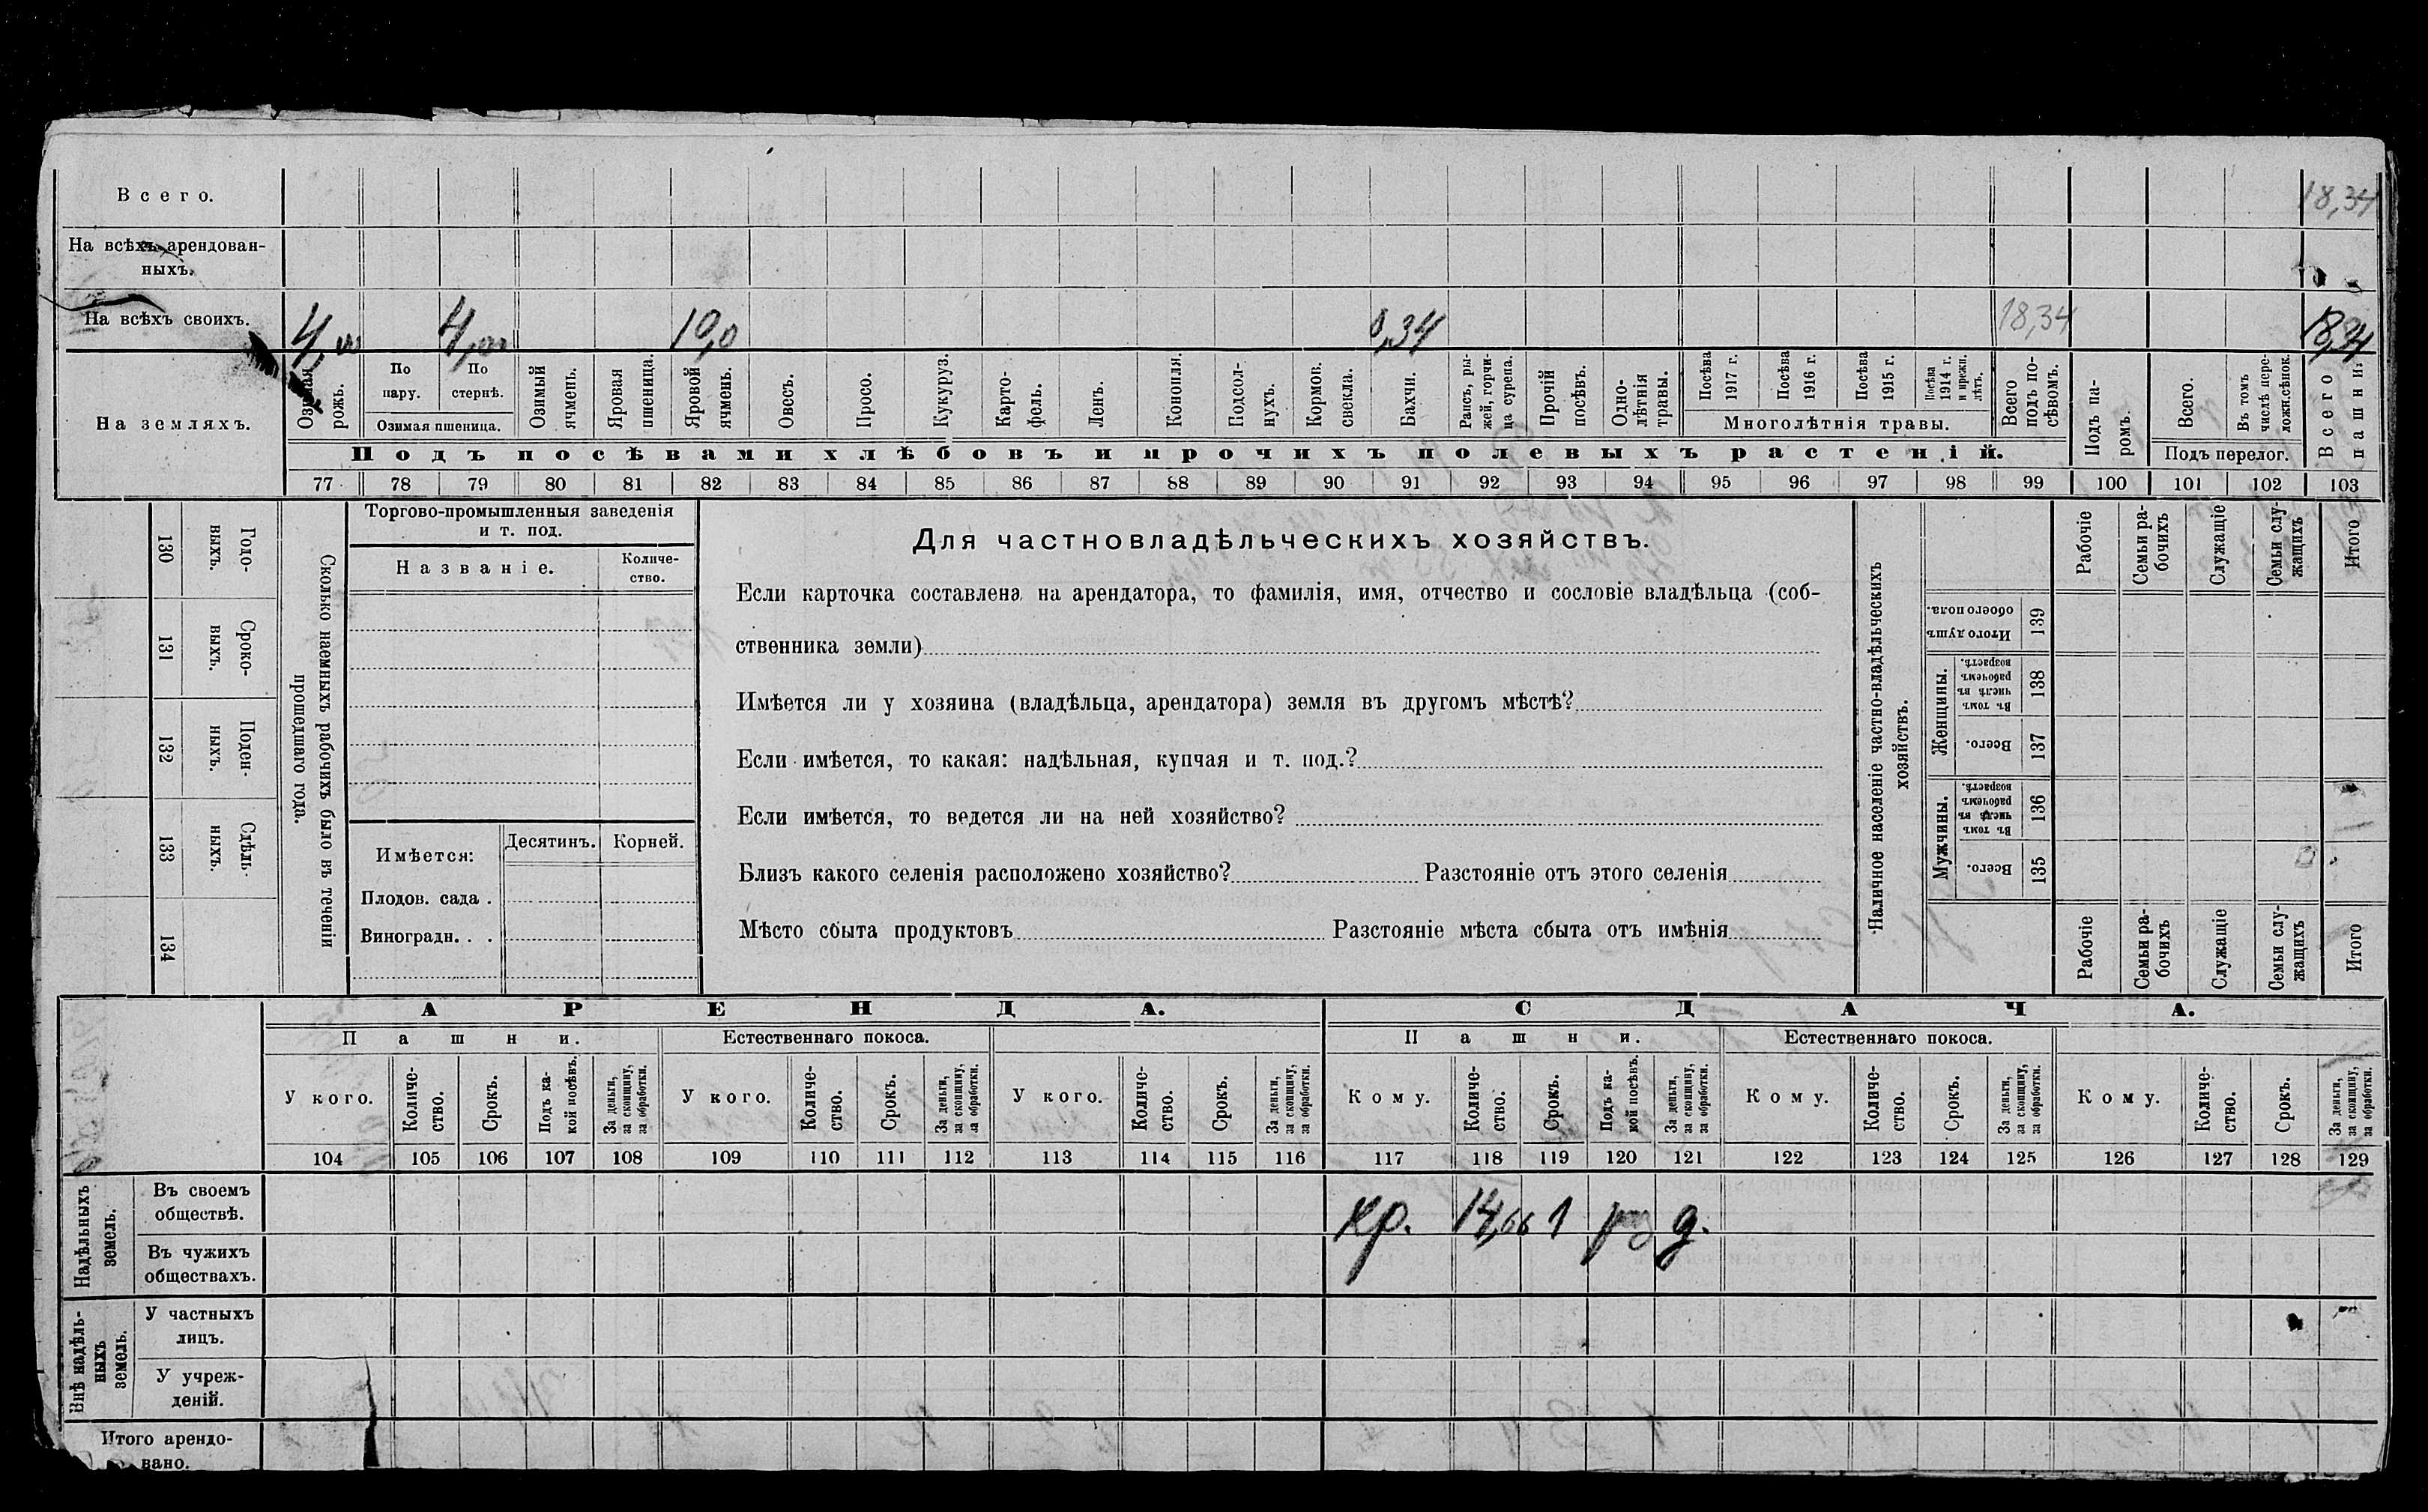 Всего. 18,34
На всѣхъ арендован-
ныхъ.
На всѣхъ своихъ. 4,00 4,00 10,0 0,34 18,34 18,34
На земляхъ.
Озимая рожь.
По пару.
По стернѣ.
Озимая пшеница.
Озимый ячмень.
Яровая пшеница.
Яровой ячмень.
Овесъ.
Просо.
Кукуруз.
Карто-
фель.
Ленъ.
Конопля.
Подсол-
нухъ.
Кормов.
свекла.
Бахчи.
Рапсъ, ры-
жей, горчи-
ца сурепа.
Прочій
посѣвъ.
Одно-
лѣтнія
травы.
Посѣва
1917 г.
Посѣва
1916 г.
Посѣва
1915 г.
Посѣва
1914 г.
и прежн.
лѣтъ.
Многолѣтнія травы.
Всего
подъ по-
сѣвомъ.
Подъ па-
ромъ.
Всего.
Въ томъ
числѣ пере-
ложн.сѣнок.
Подъ перелог.
Всего
пашни.
Подъ посѣвами хлѣбовъ и прочихъ полевыхъ растеній.
77 78 79 80 81 82 83 84 85 86 87 88 89 90 91 92 93 94 95 96 97 98 99 100 101 102 103
Сколько наемныхъ рабочихъ было въ теченіи
прошедшаго года.
Годо-
выхъ.
130
Сроко-
выхъ.
131
Поден-
ныхъ.
132
Сдѣль-
ныхъ.
133
134
Торгово-промышленныя заведенія
и т. под.
Названіе.
Количе-
ство.
Имѣется:
Десятинъ.
Корней.
Плодов. сада .
Виноградн. . .
Для частновладѣльческихъ хозяйствъ.
Если карточка составлена на арендатора, то фамилія, имя, отчество и сословіе владѣльца (соб-
ственника земли)
Имѣется ли у хозяина (владѣльца, арендатора) земля въ другомъ мѣстѣ?
Если имѣется, то какая: надѣльная, купчая и т. под.?
Если имѣется, то ведется ли на ней хозяйство?
Близъ какого селенія расположено хозяйство? Разстояніе отъ этого селенія
Мѣсто сбыта продуктовъ Разстояніе мѣста сбыта отъ имѣнія
Наличное населеніе частно-владѣльческихъ
хозяйствъ.
Рабочіе
Семьи ра-
бочихъ
Служащіе
Семьи слу-
жащихъ
Итого
Итого душъ
обоего пола.
139
Женщины.
Въ томъ
числѣ въ
рабочемъ
возрастѣ.
138
Всего.
137
Мужчины.
Въ томъ
числѣ въ
рабочемъ
возрастѣ.
136
Всего.
135
Рабочіе
Семьи ра-
бочихъ
Служащіе
Семьи слу-
жащихъ
Итого
АРЕНДА. СДАЧА.
Пашни. Естественнаго покоса. Пашни. Естественнаго покоса.
У кого.
Количе-
ство.
Срокъ.
Подъ ка-
кой посѣвъ.
За деньги,
за скопщину,
за обработки.
У кого.
Количе-
ство.
Срокъ.
За деньги,
за скопщину,
за обработки.
У кого.
Количе-
ство.
Срокъ.
За деньги,
за скопщину,
за обработки.
Кому.
Количе-
ство.
Срокъ.
Подъ ка-
кой посѣвъ.
За деньги,
за скопщину,
за обработки.
Кому.
Количе-
ство.
Срокъ.
За деньги,
за скопщину,
за обработки.
Кому.
Количе-
ство.
Срокъ.
За деньги,
за скопщину,
за обработки.
104 105 106 107 108 109 110 111 112 113 114 115 116 117 118 119 120 121 122 123 124 125 126 127 128 129
Надѣльныхъ
земель.
Въ своемъ
обществѣ.
кр. 14,66 1 д.
Въ чужихъ
обществахъ.
Внѣ надѣль-
ныхъ
земель.
У частныхъ
лицъ.
У учреж-
деній.
Итого арендо-
вано.